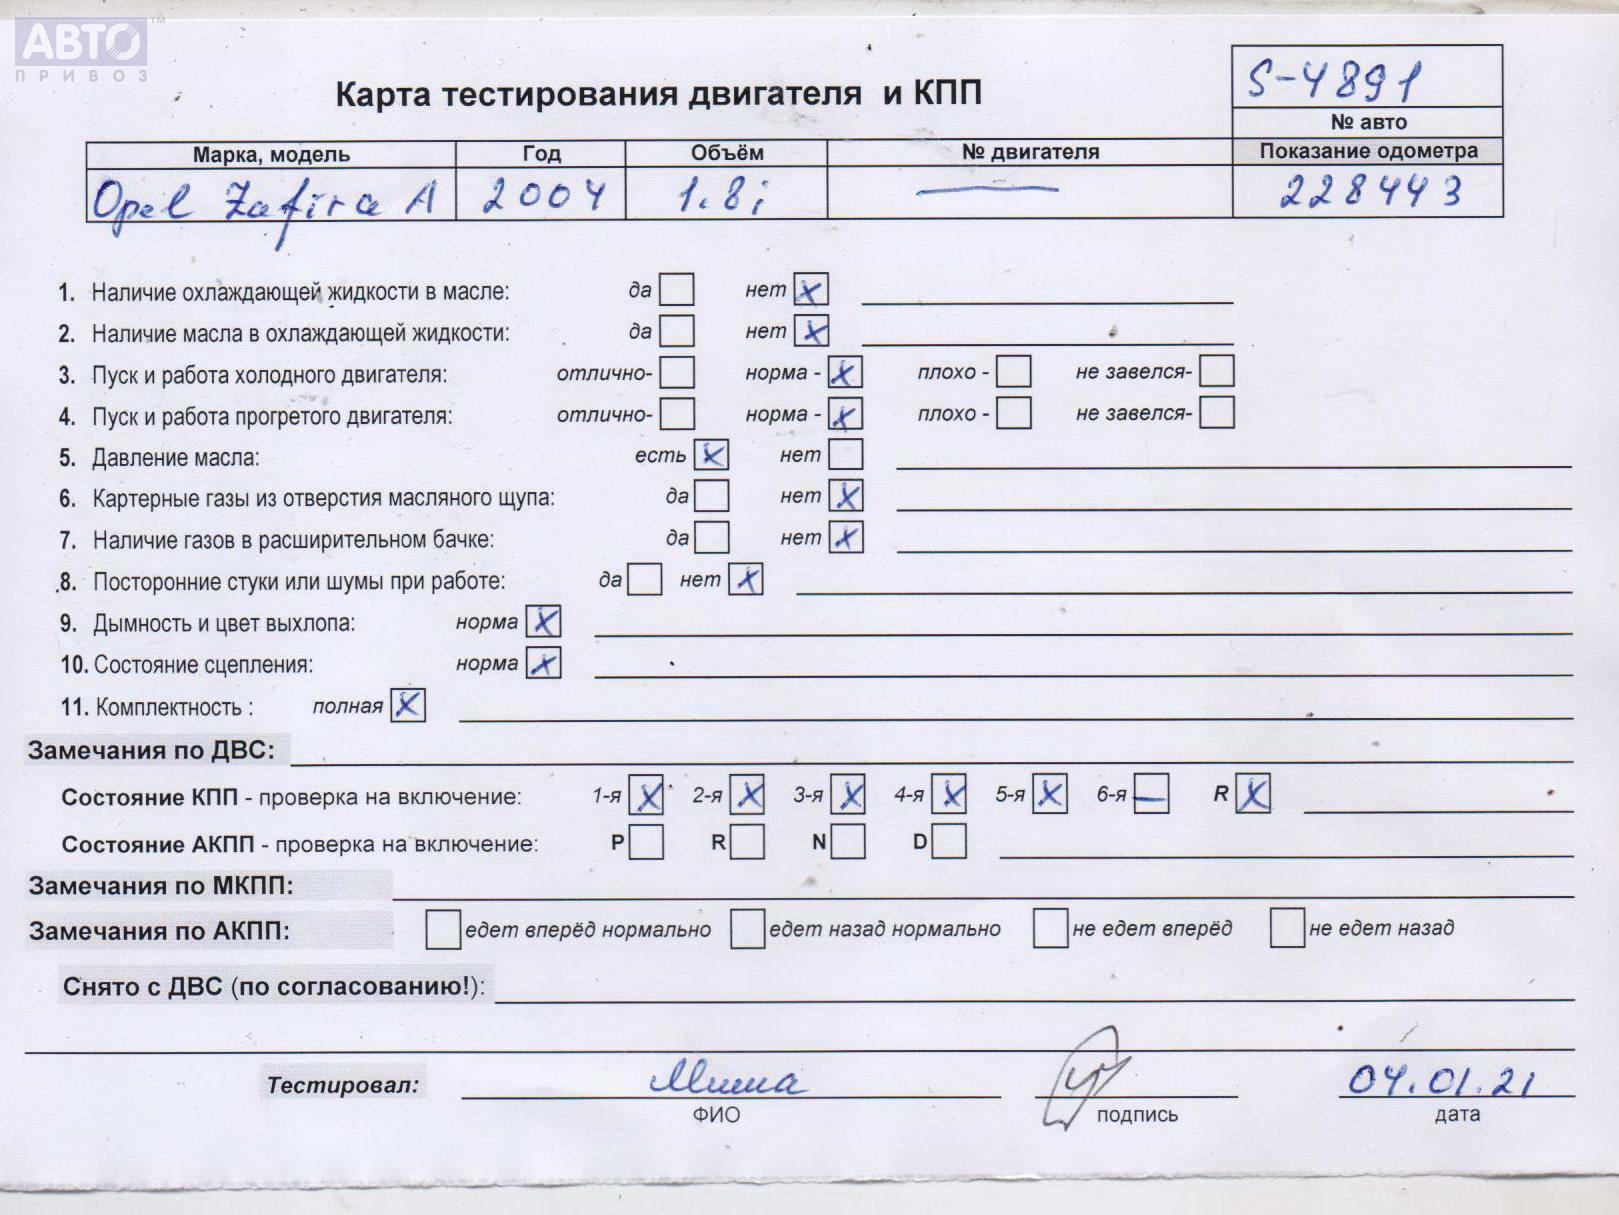 АВТО™
ПРИВОЗ
S-4891
Карта тестирования двигателя и КПП
№ авто
Марка, модель Год Объём № двигателя Показание одометра
Opel Zafira A 2004 1.8i — 228443
1. Наличие охлаждающей жидкости в масле: да нет x
2. Наличие масла в охлаждающей жидкости: да нет x
3. Пуск и работа холодного двигателя: отлично- норма - x плохо - не завелся-
4. Пуск и работа прогретого двигателя: отлично- норма - x плохо - не завелся-
5. Давление масла: есть x нет
6. Картерные газы из отверстия масляного щупа: да нет x
7. Наличие газов в расширительном бачке: да нет x
8. Посторонние стуки или шумы при работе: да нет x
9. Дымность и цвет выхлопа: норма x
10. Состояние сцепления: норма x
11. Комплектность : полная x
Замечания по ДВС:
Состояние КПП - проверка на включение: 1-я x 2-я x 3-я x 4-я x 5-я x 6-я — R x
Состояние АКПП - проверка на включение: P R N D
Замечания по МКПП:
Замечания по АКПП: едет вперёд нормально едет назад нормально не едет вперёд не едет назад
Снято с ДВС (по согласованию!):
Тестировал: Миша 04.01.21
ФИО подпись дата